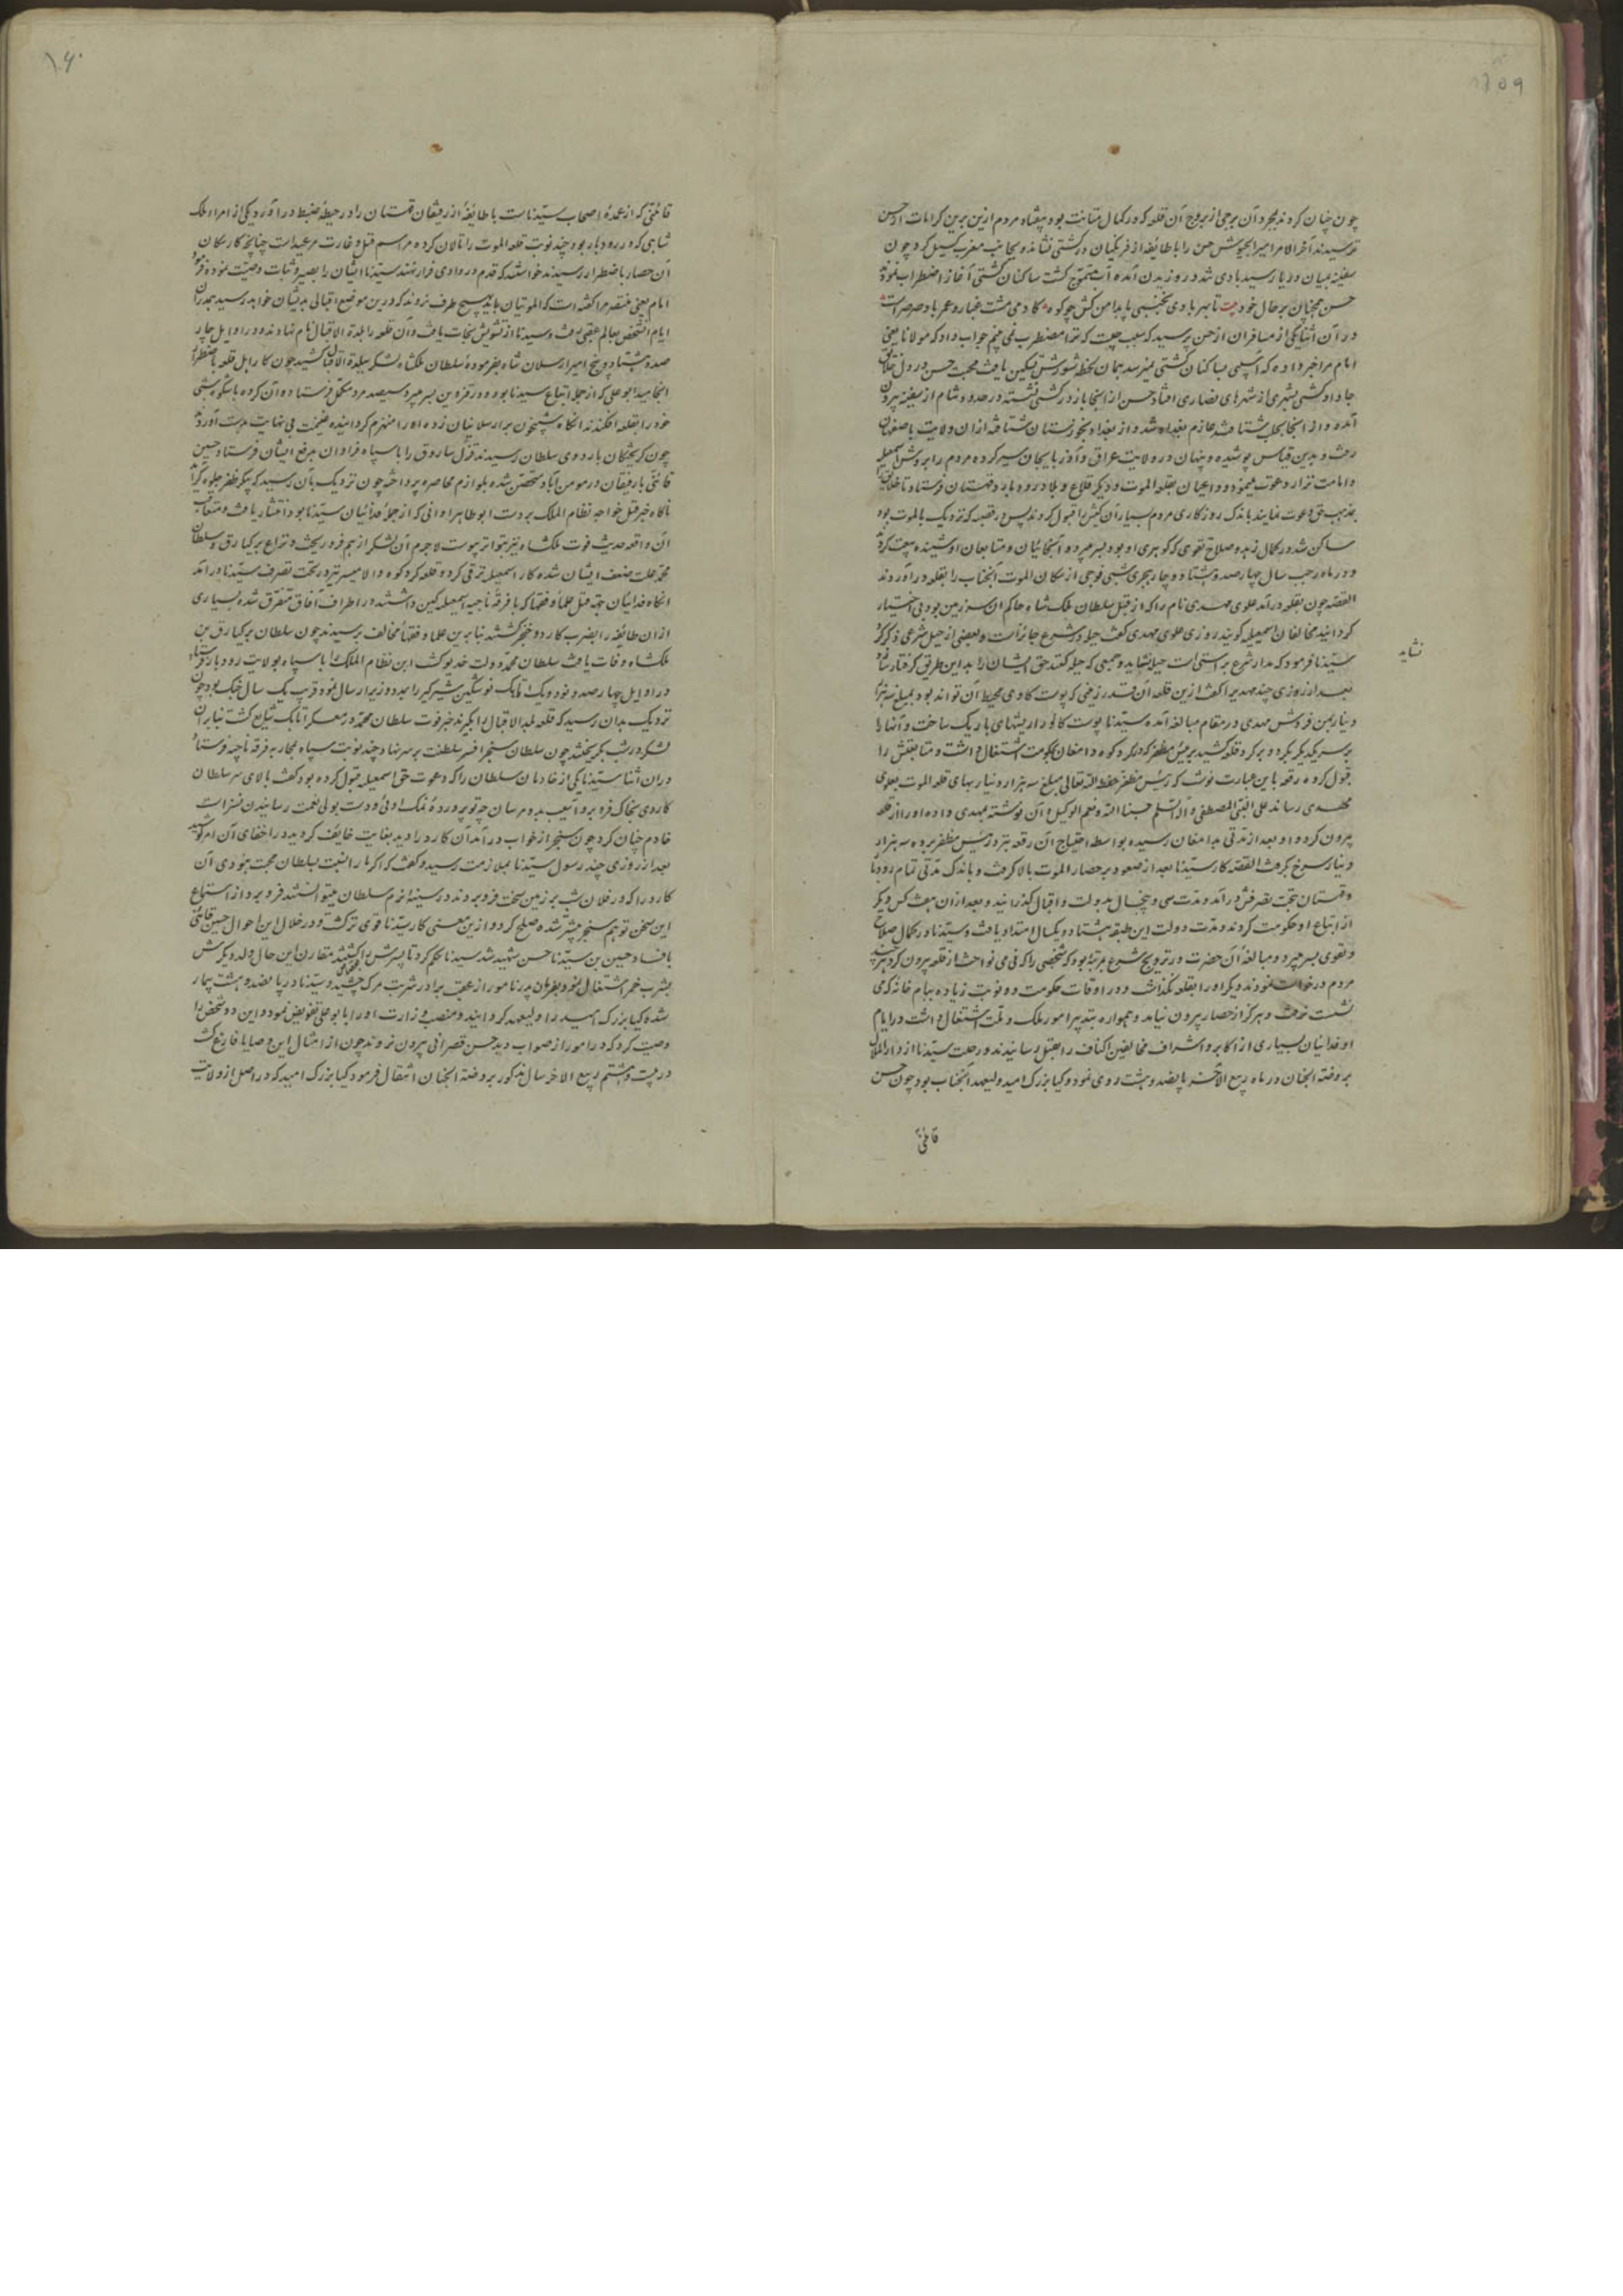 چون چنان کردند بمجرد آن برجی از بروج آن قلعه که در کمال متانت بود بیفتاد مردم ازین برین کرامات از حسن
ترسیدند آخر الامر امیر الجیوش حسن را با طایفه از فرنگیان در کشتی نشانده بجانب مغرب گسیل کرد چون
سفینه بمیان دریا رسید بادی شد در وزیدن آمده آب متموج گشت ساکنان کشتی آغاز اضطراب نمودند
حسن همچنان بر حال خود بیت تا بهر بادی نجنبی پا بدامن کش چو کوه کادمی مشت غبار و عمر باد صرصر است
در آن اثنا یکی از مسافران از حسن پرسید که سبب چیست که ترا مضطرب نمی بینم جواب داد که مولانا یعنی
امام مرا خبر داده که آسیبی بساکنان کشتی نمیرسد همان لحظه شورش تسکین یافت محبت حسن در دل خلایق
جا داد کشتی بشهری از شهرهای نصاری افتاد حسن از آنجا باز در کشتی نشسته در حدود شام از سفینه بیرون
آمده و از آنجا بحلب شتافت عازم بغداد شد و از بغداد بخوزستان شتافته از ان ولایت باصفهان
رفت و بدین قیاس پوشیده و پنهان در ولایت عراق و آذربایجان سیر کرده مردم را بروش اسمعیلیه
و امامت نزار دعوت مینمود و داعیان بقلعه الموت و دیگر قلاع و بلاد رودبار و قهستان فرستاد تا خلایق را
بمذهب حق دعوت نمایند باندک روزگاری مردم بسیار آن کیش را قبول کردند پس در قصبه که نزدیک بالموت بود
ساکن شد در کمال زهد و صلاح تقوی که گوهری او بود بسر میبرد و آنجائیان و متابعان او شنیده بیعت کردند
و در ماه رجب سال چهارصد و هشتاد و چار هجری شبی فوجی از سکان الموت آنجناب را بقلعه در آوردند
القصه چون بقلعه در آمد علوی مهدی نام را که از قبل سلطان ملک شاه حاکم ان سرزمین بود بی اختیار
گردانید مخالفان اسمعیلیه گویند روزی علوی مهدی گفت حیله در شرع جائز است و بعضی از حیل شرعی ذکر کرد
سیدنا فرمود که مدار شرع بر راستی است حیله نشاید و جمعی که حیله کنند حق ایشان را بدین طریق گرفتار سازد
نشاید
بعد از روزی چند مهدی را گفت ازین قلعه آن قدر زمینی که پوست گاوی محیط آن تواند بود بمبلغ سه هزار
دینار بمن فروش مهدی در مقام مبالغه آمده سیدنا پوست گاو را ریشهای باریک ساخت و آنها را
بر سر یکدیگر کرد و بر گرد قلعه کشید و برئیس مظفر که در گردکوه و دامغان بحکومت اشتغال داشت و متابعتش را
قبول کرده رقعه باین عبارت نوشت که رئیس مظفر حفظه الله تعالی مبلغ سه هزار دینار بهای قلعه الموت بعلوی
مهدی رساند علی النبی المصطفی و آله السلم حسبنا الله و نعم الوکیل و آن نوشته بمهدی داده او را از قلعه
بیرون کرد و او بعد از مدتی بدامغان رسیده بواسطه احتیاج آن رقعه نزد رئیس مظفر برده سه هزار
دینار سرخ گرفت القصه کار سیدنا بعد از صعود بر حصار الموت بالا گرفت و باندک مدتی تمام رودبار
و قهستان تحت تصرفش در آمد و مدت سی و پنجسال بدولت و اقبال گذرانید و بعد از ان هفت کس دیگر
از اتباع او حکومت کردند و مدت دولت این طبقه هشتاد و یکسال امتداد یافت و سیدنا در کمال صلاح
و تقوی بسر میبرد و مبالغه آن حضرت در ترویج شرع بمرتبه بود که شخصی را که نی می نواخت از قلعه بیرون کرد هرچند
مردم درخواست نمودند دیگر او را بقلعه نگذاشت و در اوقات حکومت دو نوبت زیاده ببام خانه که می
نشست نرفت و هرگز از حصار بیرون نیامد و همواره بتدبیر امور ملک و ملت اشتغال داشت در ایام
او فدائیان بسیاری از اکابر و اشراف مخالفین اکناف را بقتل رسانیدند و رحلت سیدنا از دار الملال
بروضه الجنان در ماه ربیع الآخر پانصد و هشت روی نمود و کیا بزرگ امید ولیعهد آنجناب بود چون حسن
قائنی
قائنی که از عمده اصحاب سیدناست با طایفه از رفیقان قهستان را در حیطه ضبط در آورد یکی از امراء ملک
شاهی که در رودبار بود چند نوبت قلعه الموت را تالان کرده مراسم قتل و غارت مرعی داشت چنانچه کار سکان
آن حصار باضطرار رسیدند خواستند که قدم در وادی فرار نهند سیدنا ایشان را بصبر و ثبات وصیت نموده فرمود
امام یعنی مستنصر مرا گفته است که الموتیان باید بهیچ طرف نروند که درین موضع اقبالی بدیشان خواهد رسید همدران
ایام آن شخص بعالم عقبی رفت و سیدنا از تشویش نجات یافت و آن قلعه را بلدة الاقبال نام نهادند و در اوایل چار
صد و هشتاد و پنج امیر ارسلان شاه بفرموده سلطان ملکشاه لشکر ببلدة الاقبال کشید چون کار اهل قلعه باضطرار
انجامید ابوعلی که از جمله اتباع سیدنا بود و در قزوین بسر میبرد سیصد مرد مکمل فرستاده آن گروه باشکوه شبی
خود را بقلعه افکندند آنگاه شبیخون بر ارسلانیان زده او را منهزم گردانیده غنیمت بی نهایت بدست آوردند
چون گریختگان باردوی سلطان رسیدند قزل ساروق را با سپاه فراوان بدفع ایشان فرستاد حسین
قائنی با رفیقان در مومن آباد متحصن شده بلوازم محاصره پرداخت چون نزدیک بآن رسید که پیکر ظفر جلوه گر آید
ناگاه خبر قتل خواجه نظام الملک بر دست ابوطاهر اوانی که از جمله فدائیان سیدنا بود انتشار یافت و متعاقب
آن واقعه حدیث فوت ملکشاه نیز بتواتر پیوست لاجرم آن لشکر از هم فرو ریخت و نزاع برکیارق و سلطان
محمد علت ضعف ایشان شده کار اسمعیلیه ترقی کرد و قلعه گردکوه و لامیسر نیز در تحت تصرف سیدنا در آمد
آنگاه فدائیان جهة قتل علما و فقها که با فرقه ناجیه اسمعیلیه کین داشتند در اطراف آفاق متفرق شده بسیاری
از ان طایفه را بضرب کارد و خنجر کشتند بنابرین علما و فقهاء مخالف برسیدند چون سلطان برکیارق بن
ملکشاه وفات یافت سلطان محمد دولت خدیو گشت ابن نظام الملک را با سپاه بولایت رودبار فرستاد
در اوایل چهارصد و نود و یک اتابک نوشتکین شیرگیر را بمدد وزیر ارسال نمود قریب یک سال جنگ بود چون
نزدیک بدان رسید که قلعه بلد الاقبال را بگیرند خبر فوت سلطان محمد در معسکر اتابک شایع گشت بنابر آن
لشکر در شب بگریختند چون سلطان سنجر افسر سلطنت بر سر نهاد چند نوبت سپاه بمحاربه فرقه ناجیه فرستاد
در ان اثنا سیدنا یکی از خادمان سلطان را که دعوت حق اسمعیلیه قبول کرده بود گفت بالای سر سلطان
کاردی بخاک فرو برد و آسیب بدو مرسان چه تو پرورده نمک اوئی و دست بولی نعمت رسانیدن نسزاست
خادم چنان کرد چون سنجر از خواب در آمد آن کارد را دید بغایت خایف گردید در اخفای آن امر کوشید
بعد از روزی چند رسول سیدنا بملازمت رسید و گفت که اگر ما را نسبت بسلطان محبت نبودی آن
کارد را که در فلان شب بر زمین سخت فرو بردند در سینه نرم سلطان میتوانستند فرو برد از استماع
این سخن توهم سنجر بیشتر شده صلح کرد و ازین معنی کار سیدنا قوی تر گشت و در خلال این احوال حسین قائنی
بافساد حسین بن سیدنا حسن شهید شد سیدنا حکم کرد تا پسرش را کشتند مقارن این حال ولد دیگرش
بشرب خمر اشتغال نمود بفرمان پدر نامور از عقب برادر شربت مرگ چشید و سیدنا در پانصد و هشت بیمار
شده کیا بزرگ امید را ولیعهد گردانید و منصب وزارت او را بابوعلی تفویض نمود و این دو شخص را
وصیت کرد که در امور از صواب دید حسن قصرانی بیرون نروند چون از امثال این وصایا فارغ گشت
در بیست و هشتم ربیع الاخر سال مذکور بروضة الجنان انتقال فرمود کیا بزرگ امید که در اصل از ولایت